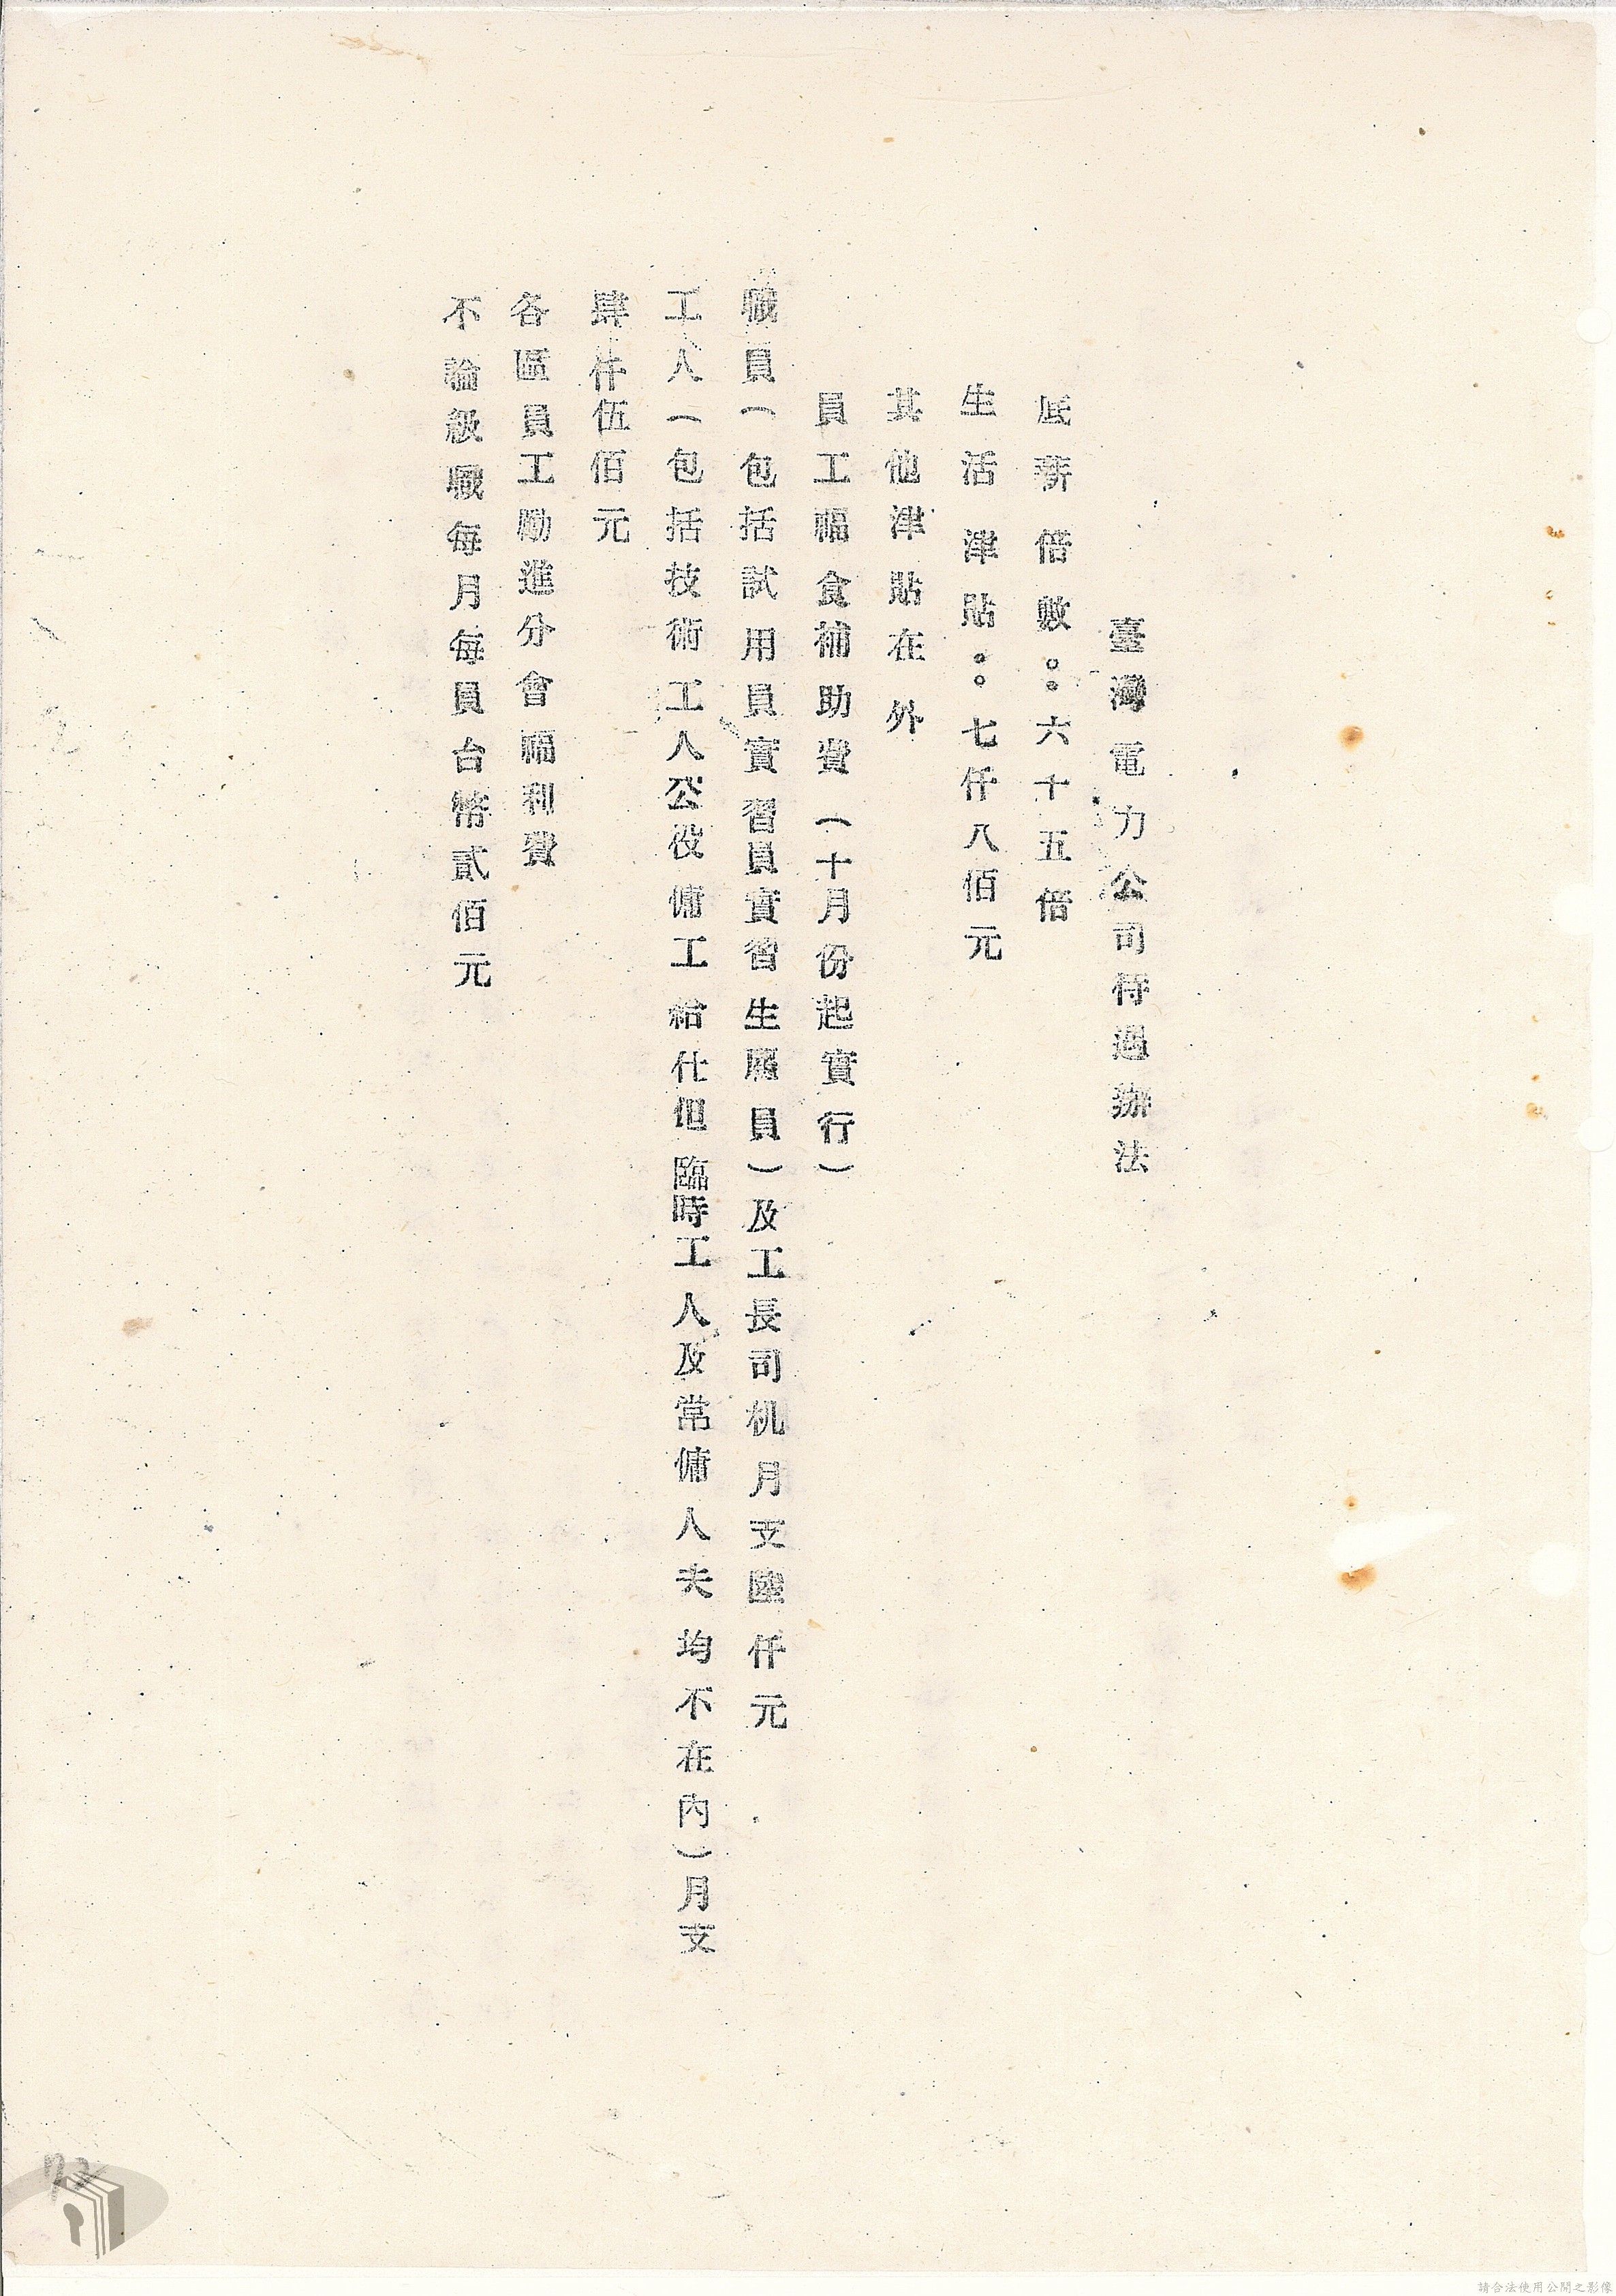 臺灣電力公司待遇辦法
底薪倍數：六十五倍
生活津貼：七仟八佰元
其他津貼在外
員工福食補助費（十月份起實行）
職員（包括試用員實習員實習生雇員）及工長司机月支陸仟元
工人（包括技術工人公役傭工給仕他臨時工人及常傭人夫均不在內）月支
肆仟伍佰元
各區員工勵進分會福利費
不論級職每月每員台幣貳佰元
72
請合法使用公開之影像